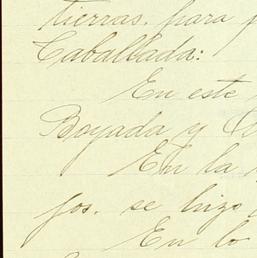 tierras. para
Caballada:
En este
Boyada y
En la
jos. se hizo
En lo